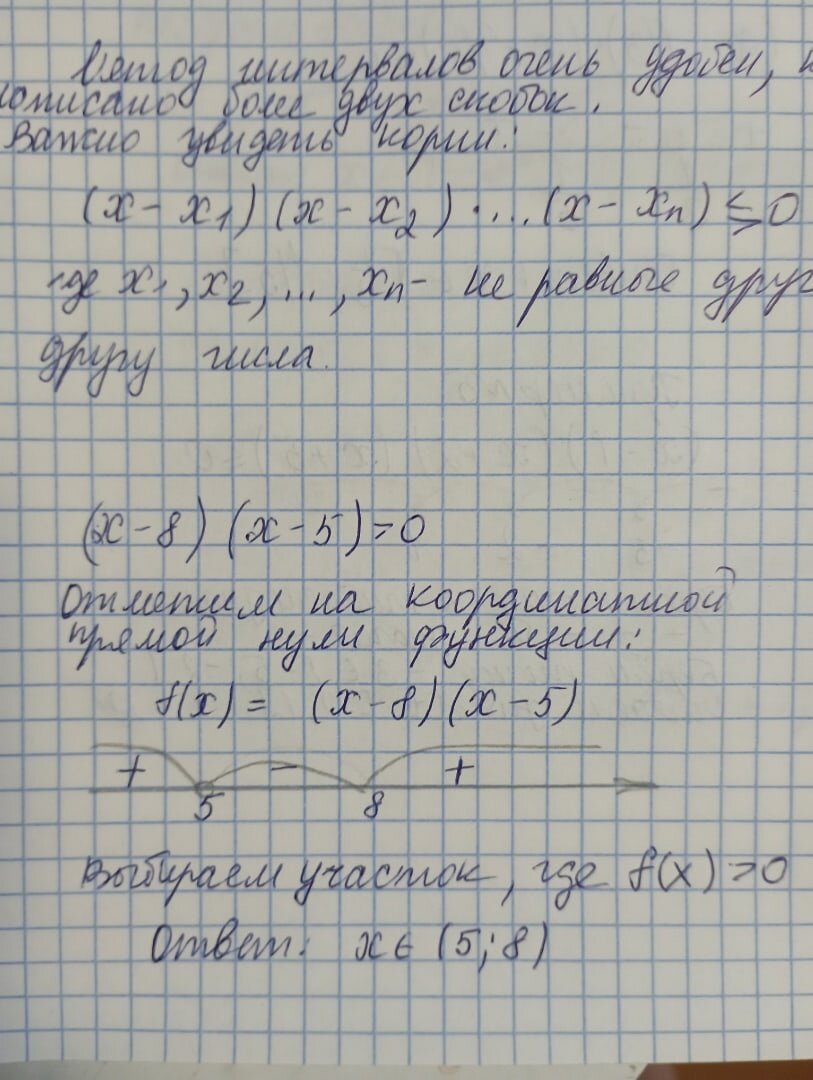 Метод интервалов очень удобен,
написано более двух скобок.
Важно увидеть корни:
(x - x₁) (x - x₂) · ... (x - xₙ) ≶ 0
где x₁, x₂, ..., xₙ - не равные друг
другу числа.
(x - 8) (x - 5) > 0
Отметим на координатной
прямой нули функции:
f(x) = (x - 8) (x - 5)
+ - +
5 8
Выбираем участок, где f(x) > 0
Ответ: x ∈ (5; 8)